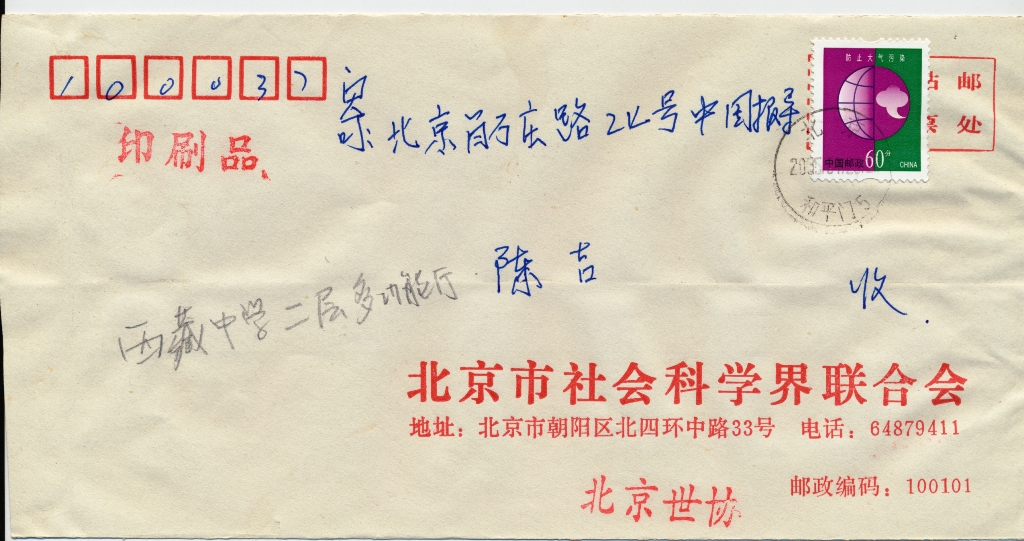 100037
北京市百万庄路24号中国报导
印刷品
防止大气污染
中国邮政 60分 CHINA
贴邮
票处
北
和平门 5
陈吉 收
西藏中学二层多功能厅
北京市社会科学界联合会
地址：北京市朝阳区北四环中路33号 电话：64879411
邮政编码：100101
北京世协